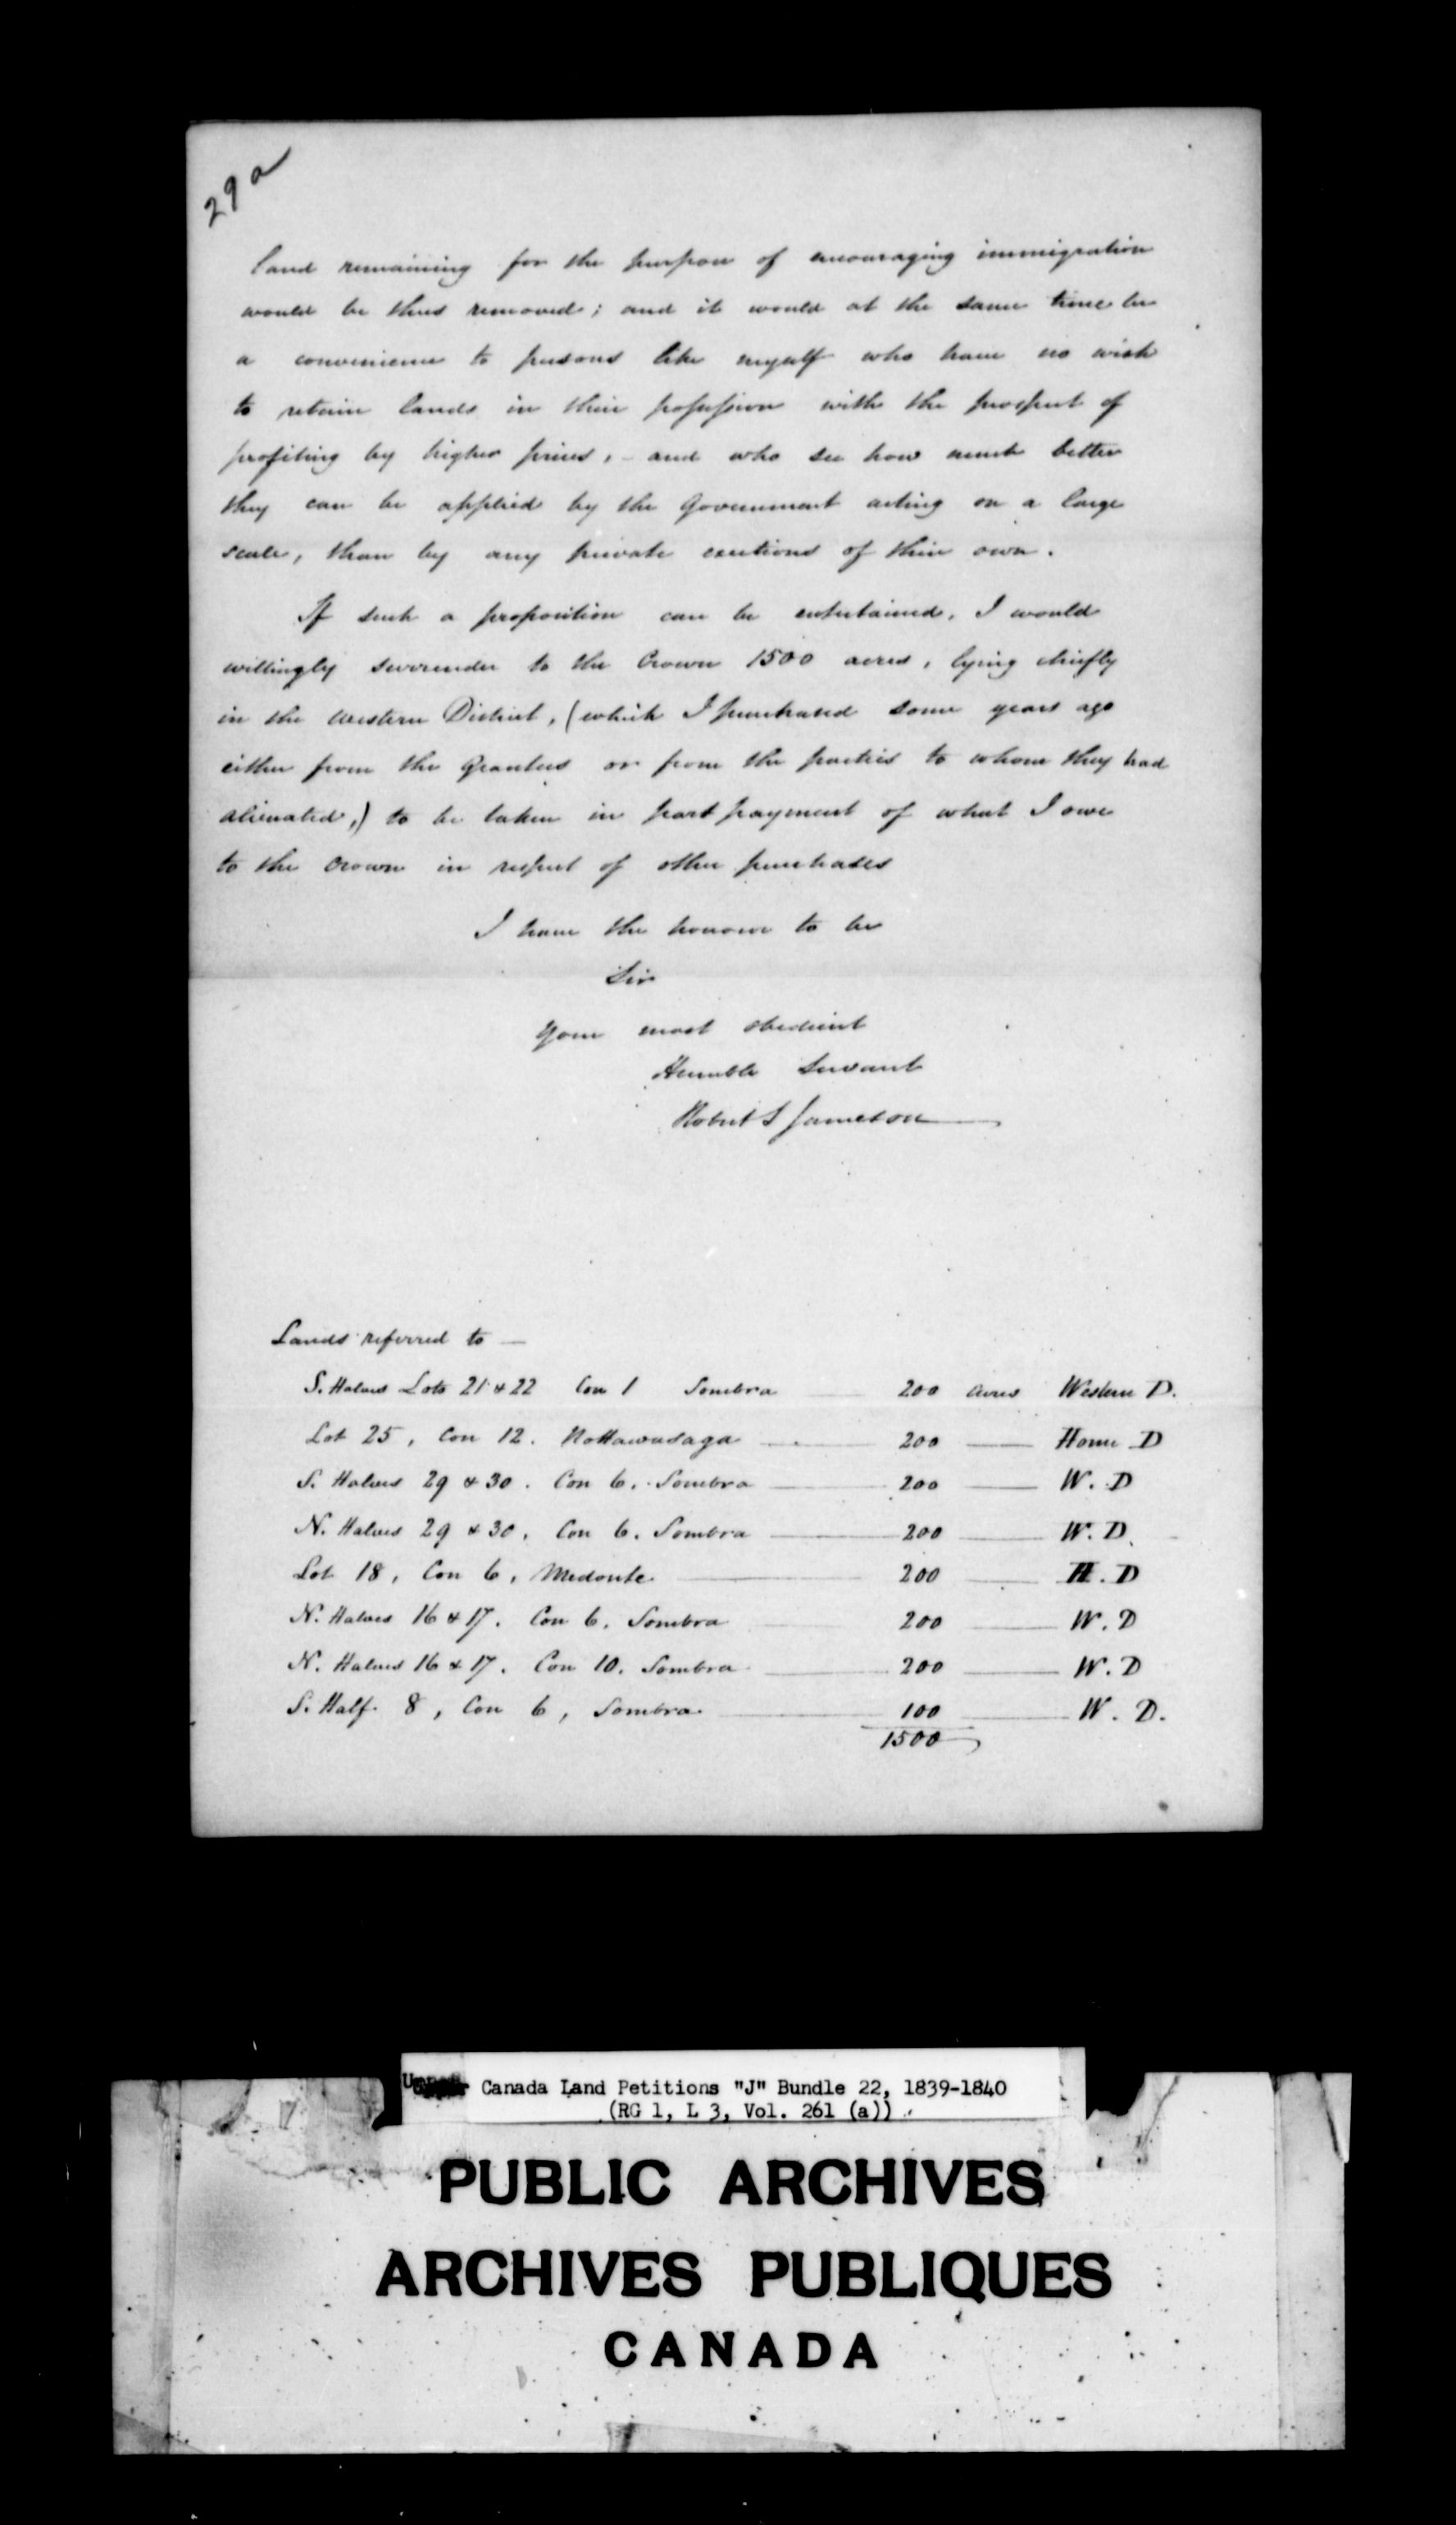 29a
land remaining for the purpose of encouraging immigration
would be thus removed; and it would at the same time be
a convenience to persons like myself who have no wish
to retain lands in their possession with the prospect of
profiting by higher prices, - and who see how much better
they can be applied by the Government acting on a large
scale, than by any private exertions of their own.
If such a proposition can be entertained, I would
willingly surrender to the Crown 1500 acres, lying chiefly
in the Western District, (which I purchased some years ago
either from the Grantees or from the parties to whom they had
alienated,) to be taken in part payment of what I owe
to the Crown in respect of other purchases
I have the honour to be
Sir
Your most obedient
Humble Servant
Robert S Jameson
Lands referred to —
S. Halves Lots 21 & 22 Con 1 Sombra 200 acres Western D.
Lot 25, Con 12. Nottawasaga — 200 — Home D
S. Halves 29 & 30. Con 6. Sombra — 200 — W. D
N. Halves 29 & 30, Con 6. Sombra — 200 — W. D.
Lot 18, Con 6, Medonte — 200 — H. D
N. Halves 16 & 17. Con 6. Sombra — 200 — W. D
N. Halves 16 & 17. Con 10. Sombra — 200 — W. D
S. Half 8, Con 6, Sombra — 100 — W. D.
1500
Upper Canada Land Petitions "J" Bundle 22, 1839-1840
(RG 1, L 3, Vol. 261 (a))
PUBLIC ARCHIVES
ARCHIVES PUBLIQUES
CANADA